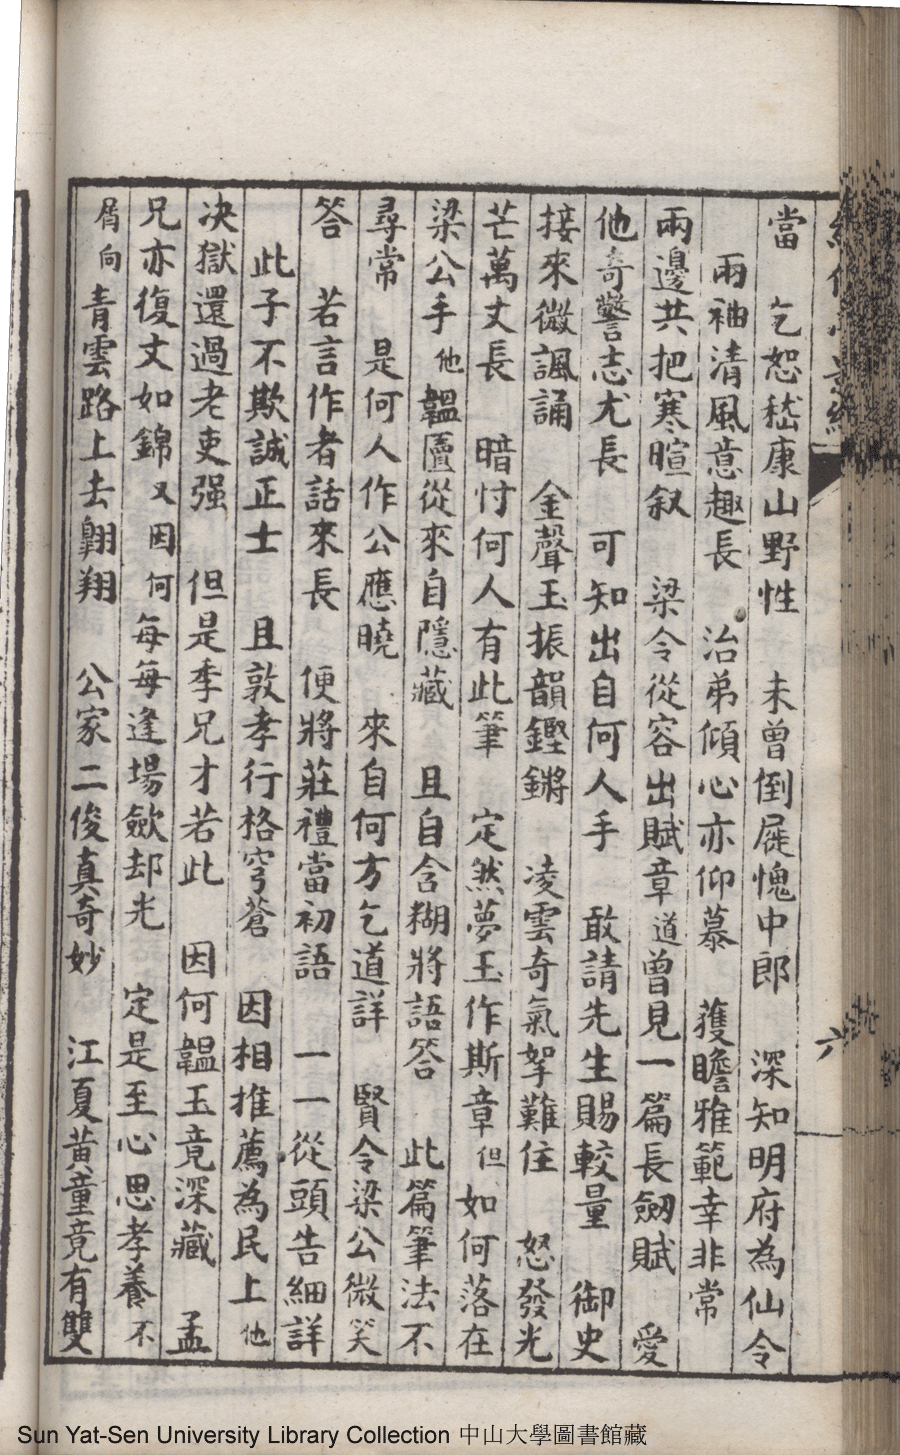 當　乞恕嵇康山野性　未曾倒屣愧中郎　深知明府為仙令
兩袖清風意趣長　治弟傾心亦仰慕　獲瞻雅範幸非常
兩邊共把寒暄叙　梁令從容出賦章道曾見一篇長劒賦　愛
他奇警志尤長　可知出自何人手　敢請先生賜較量　御史
接來微諷誦　金聲玉振韻鏗鏘　凌雲奇氣拏難住　怒發光
芒萬丈長　暗忖何人有此筆　定然夢玉作斯章但如何落在
梁公手他韞匵從來自隱藏　且自含糊將語答　此篇筆法不
尋常　是何人作公應曉　來自何方乞道詳　賢令梁公微笑
答　若言作者話來長　便將莊禮當初語　一一從頭告細詳
此子不欺誠正士　且敦孝行格穹蒼　因相推薦為民上他
决獄還過老吏强　但是季兄才若此　因何韞玉竟深藏　孟
兄亦復文如錦又因何每每逢場歛却光　定是至心思孝養不
屑向青雲路上去翺翔　公家二俊真奇妙　江夏黃童竟有雙
六
Sun Yat-Sen University Library Collection 中山大學圖書館藏